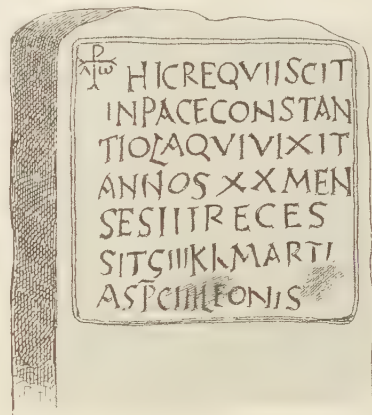 HICREQVIISCIT
INPACECONSTAN
TIOLAQVIVIXIT
ANNOS XX MEN
SESIIIRECES
SITϚIIIKLMARTI
ASPC